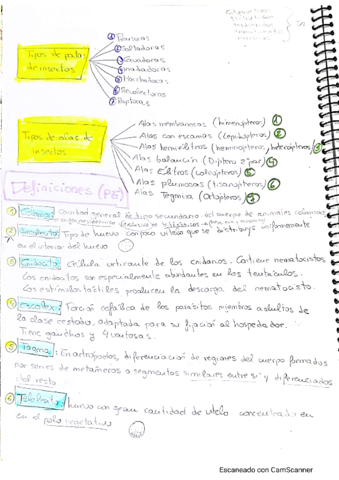 ① Peruras
② Saltadoras
③ Cavadoras
④ Nadadoras
⑤ Marchadoras
⑥ Recolectoras
⑦ Raptoras
Tipos de patas
de insectos
Tipos de alas de
insectos
Alas membranosas (himenópteros) ①
Alas con escamas (Lepidópteros) ②
Alas hemiélitros (hemimópteros, heterópteros) ③
Alas balancín (Díptera) ④
Alas Élitros (coleópteros) ⑤
Alas plumosas (tisanópteros) ⑥
Alas Tegmina (Ortópteros) ⑦
Definiciones (PE)
① Celoma: Cavidad general de tipo secundario del cuerpo de animales celomados
② Tipo de huevo con poco vitelo que se distribuye uniformemente
en el interior del huevo
③ Cnidocito: Célula urticante de los cnidarios. Contiene nematocistos
Los cnidocitos son especialmente abundantes en los tentáculos.
Los estímulos táctiles producen la descarga del nematocisto.
④ escólex: Porción cefálica de los parásitos miembros adultos de
la clase cestoda, adaptada para su fijación al hospedador.
Tiene ganchos y 4 ventosas.
⑤ Tagma: En artrópodos, diferenciación de regiones del cuerpo formados
por series de metámeros o segmentos similares entre sí y diferenciados
del resto
⑥ Telolecito: huevo con gran cantidad de vitelo concentrado en
en el polo vegetativo
Escaneado con CamScanner